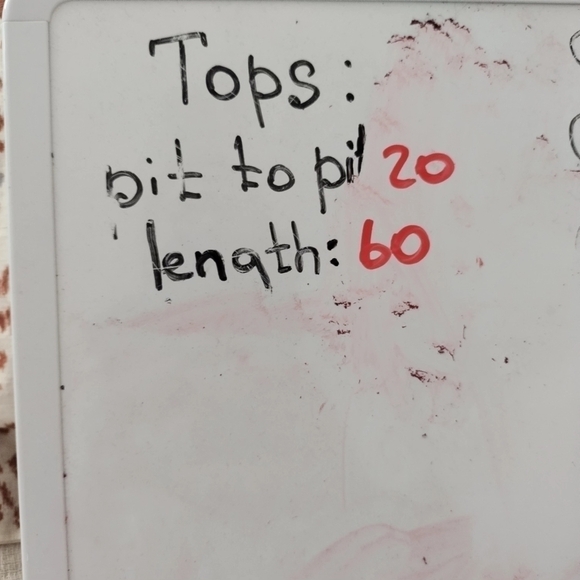 Tops:
pit to pit 20
length: 60